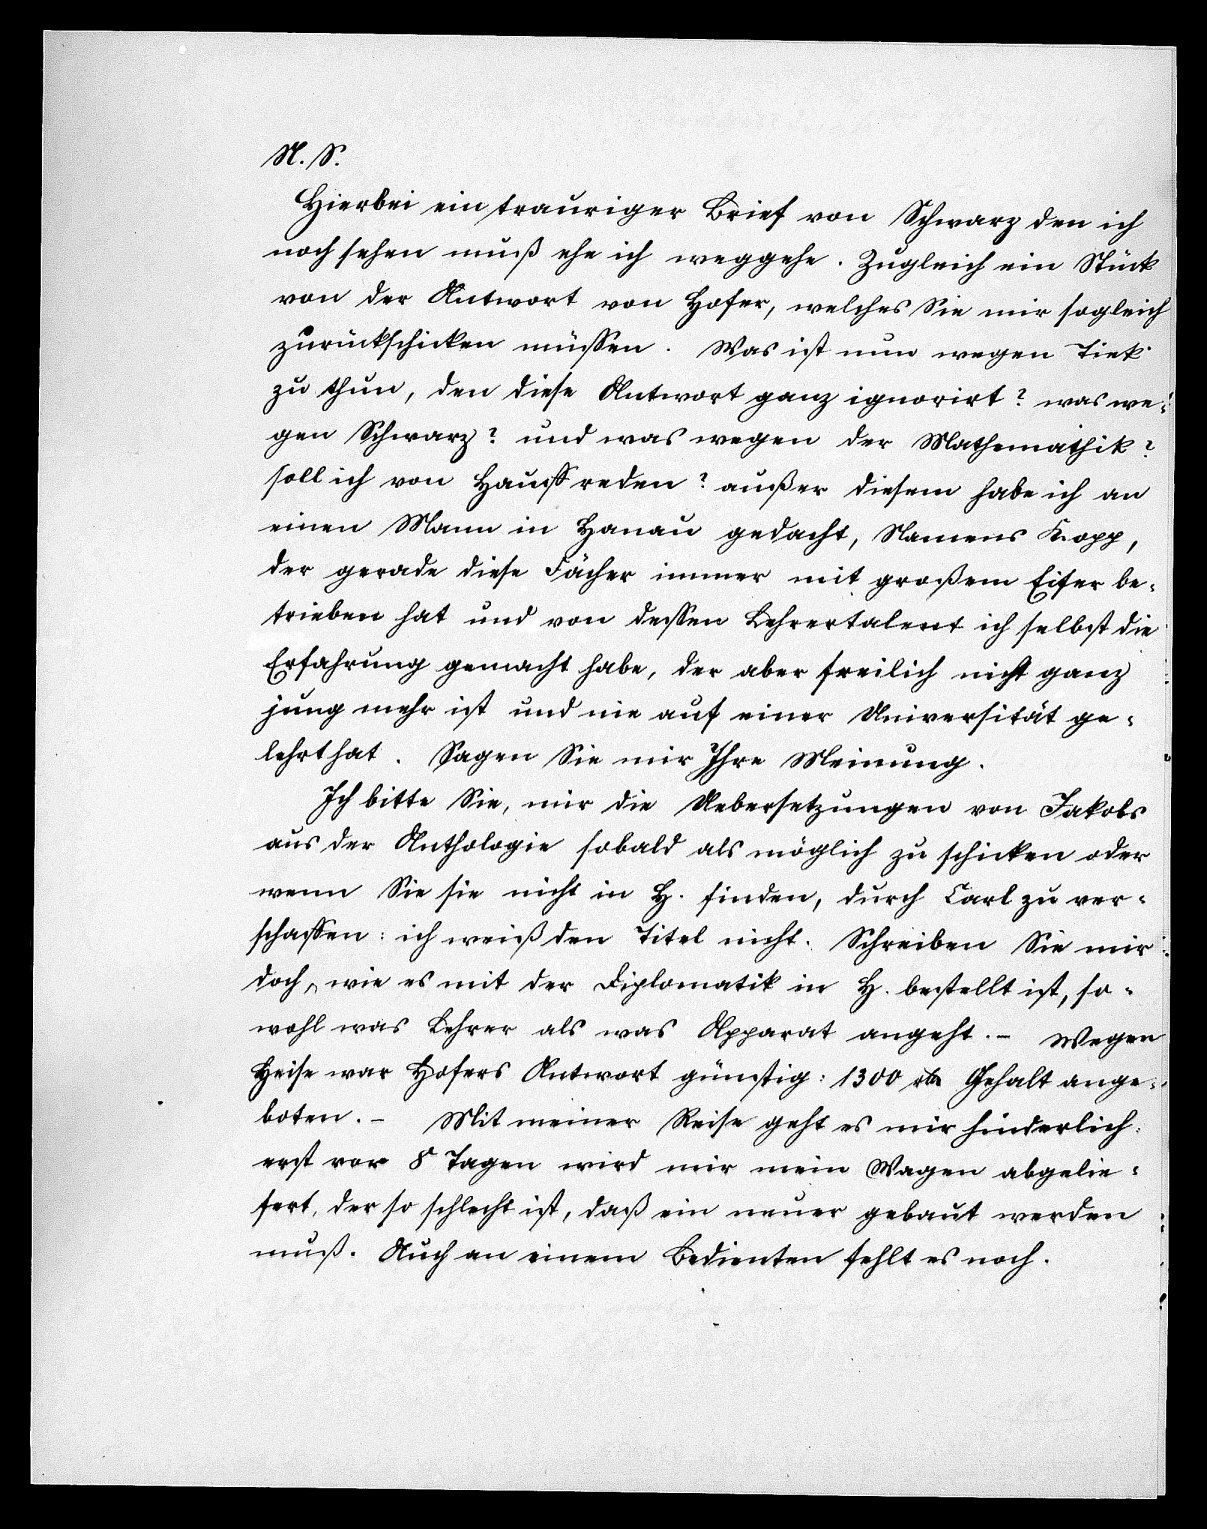 N. S.
Hierbei ein trauriger Brief von Schwarz den ich
noch sehen muß ehe ich weggehe. Zugleich ein Stück
von der Antwort von Hofer, welches Sie mir sogleich
zurückschicken müssen. Was ist nun wegen Tiek
zu thun, den diese Antwort ganz ignorirt? was we-
gen Schwarz? und was wegen der Mathemathik?
soll ich von Hauff reden? außer diesem habe ich an
einen Mann in Hanau gedacht, Namens Kopp,
der gerade diese Fächer immer mit großem Eifer be-
trieben hat und von dessen Lehrertalent ich selbst die
Erfahrung gemacht habe, der aber freilich nicht ganz
jung mehr ist und nie auf einer Universität ge-
lehrt hat. Sagen Sie mir Ihre Meinung.
Ich bitte Sie, mir die Uebersetzungen von Jakobs
aus der Anthologie sobald als möglich zu schicken oder
wenn Sie sie nicht in H. finden, durch Carl zu ver-
schaffen: ich weiß den Titel nicht. Schreiben Sie mir
doch, wie es mit der Diplomatik in H. bestellt ist, so-
wohl was Lehrer als was Apparat angeht. – Wegen
Heise war Hofers Antwort günstig: 1300 rtlr Gehalt ange-
boten. – Mit meiner Reise geht es mir hinderlich:
erst vor 8 Tagen wird mir mein Wagen abgelie-
fert, der so schlecht ist, daß ein neuer gebaut werden
muß. Auch an einem Bedienten fehlt es noch.